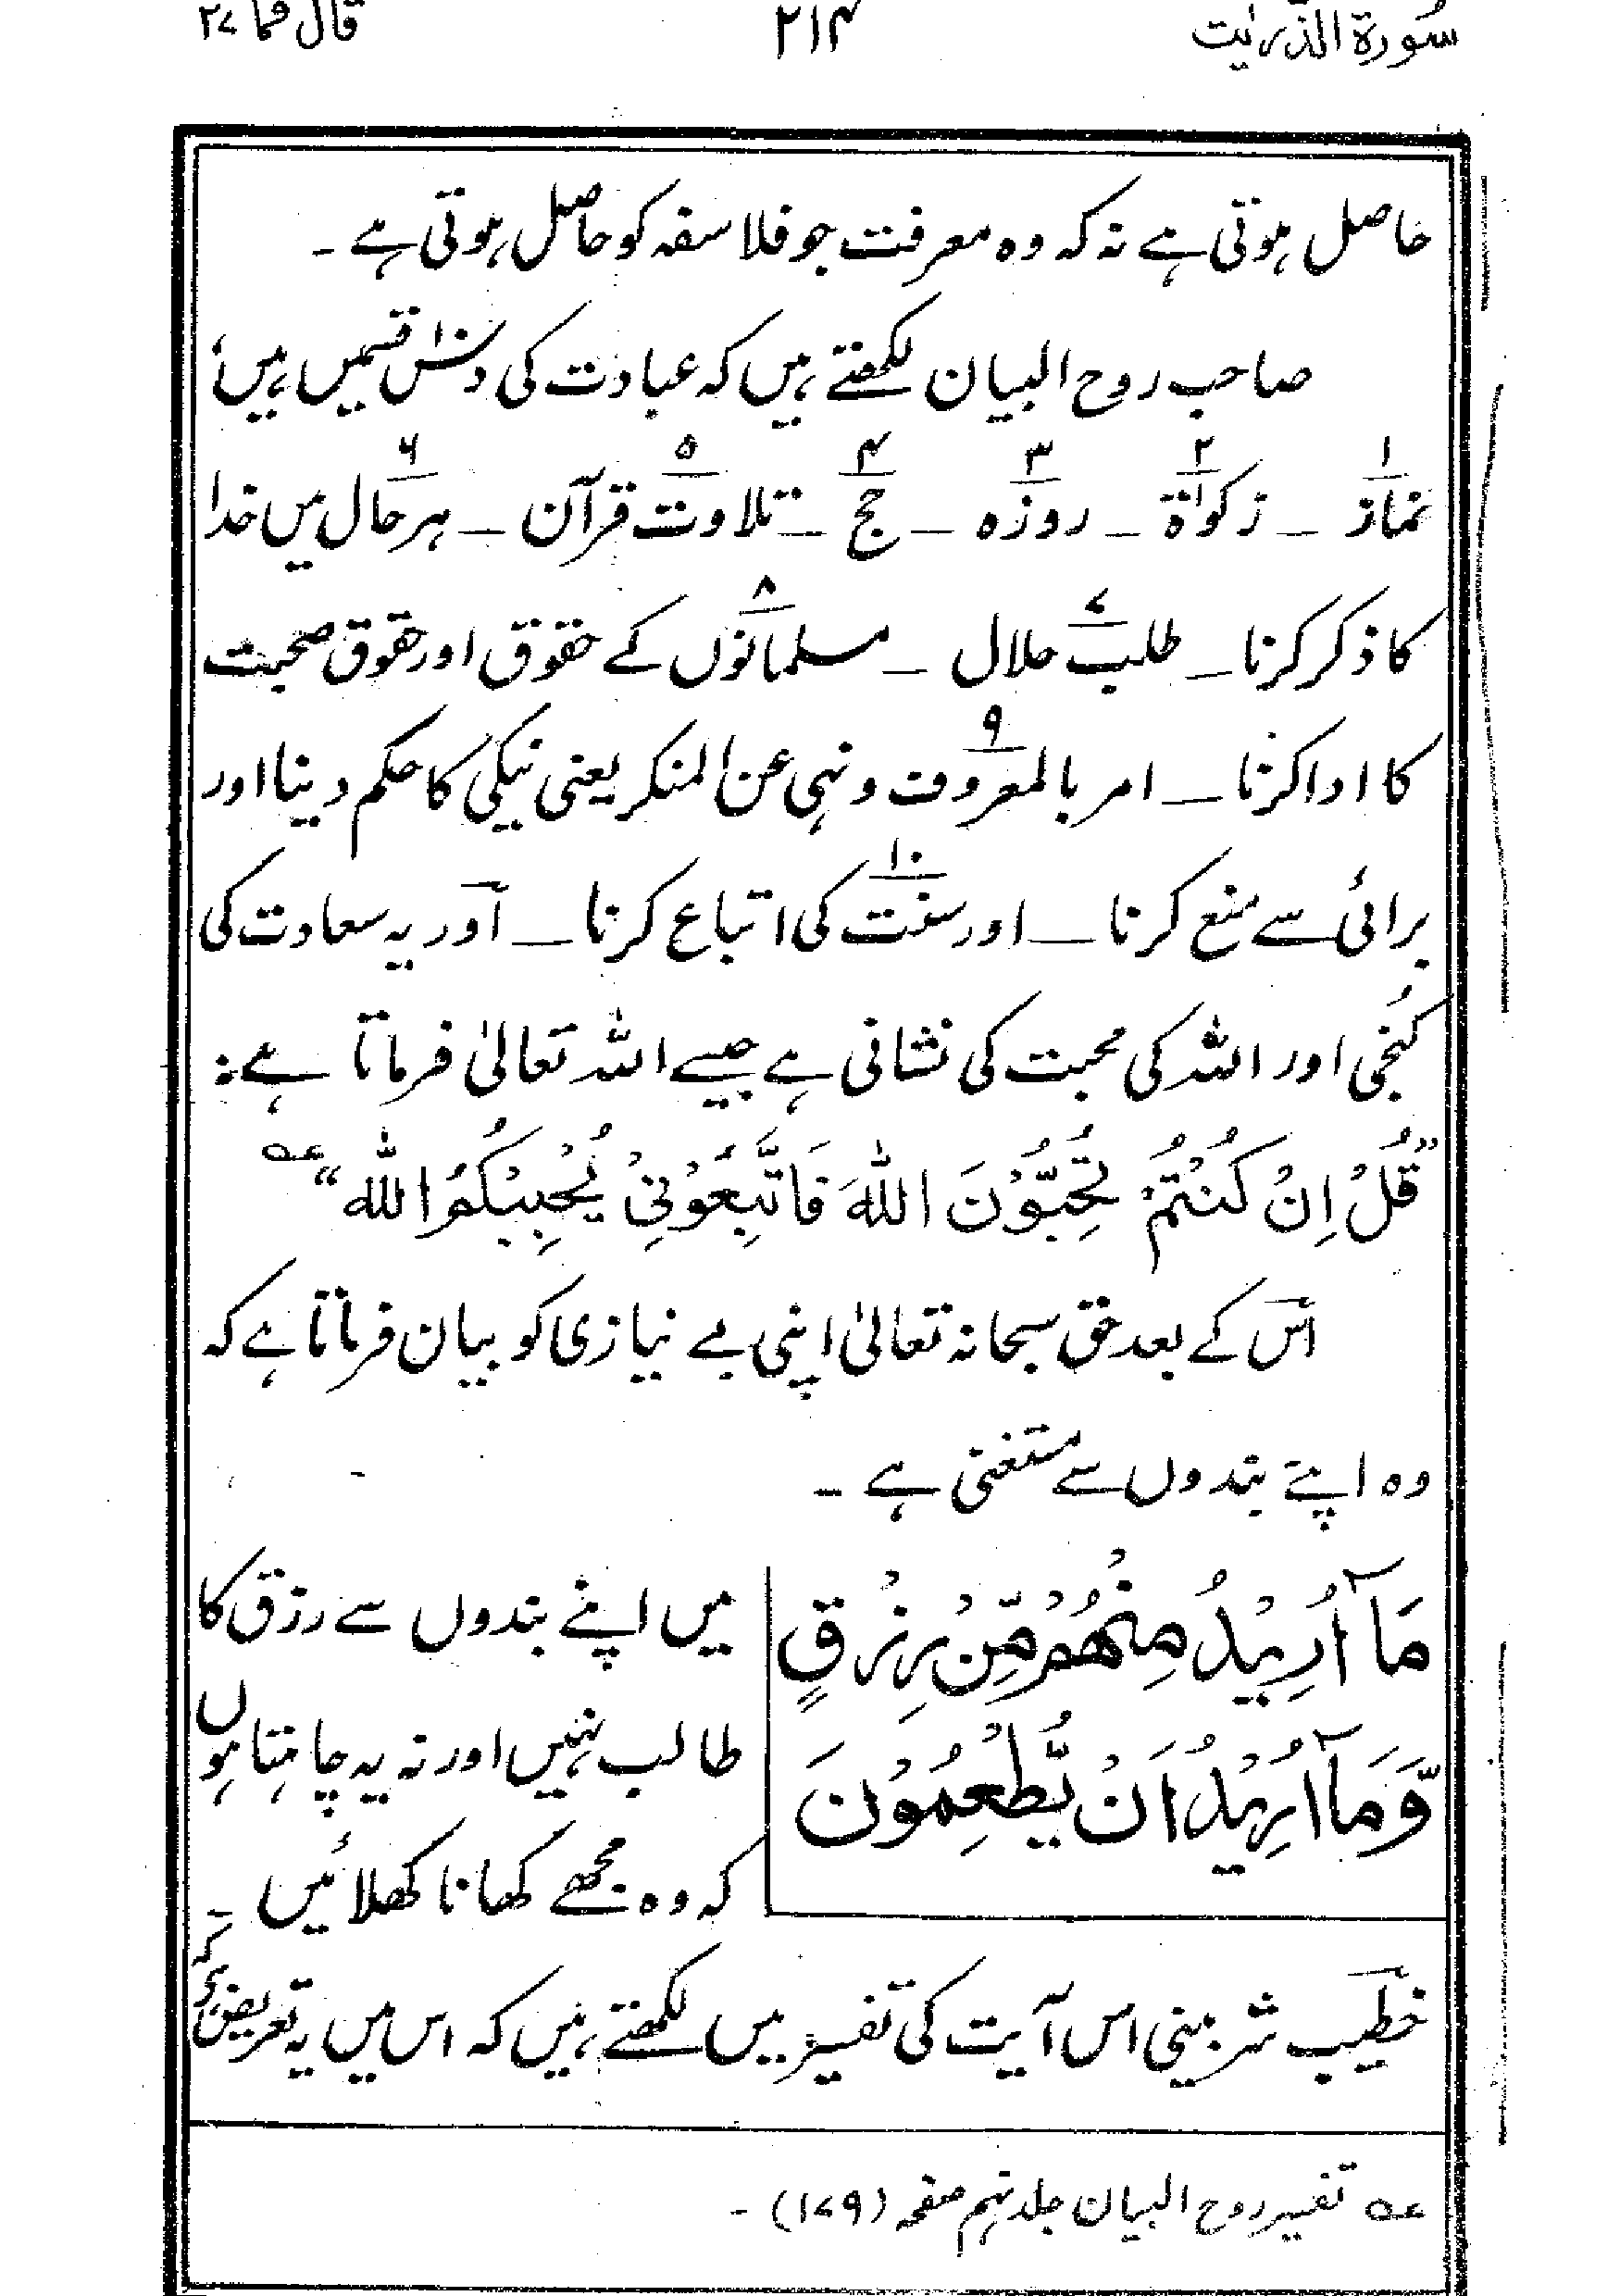 سُورة الذّٰریٰت ۲۱۴ قال فما ۲۷
حاصل ہوتی ہے نہ کہ وہ معرفت جو فلاسفہ کو حاصل ہوتی ہے ۔
صاحب روح البیان لکھتے ہیں کہ عبادت کی دس۱۰ قسمیں ہیں؛
۱ ۲ ۳ ۴ ۵ ۶
نماز ۔ زکوٰۃ ۔ روزہ ۔ حج ۔ تلاوت قرآن ۔ ہر حال میں خدا
۷ ۸
کا ذکر کرنا ۔ طلب حلال ۔ مسلمانوں کے حقوق اور حقوق صحبت
۹
کا ادا کرنا ۔ امر بالمعروف ونہی عن المنکر یعنی نیکی کا حکم دینا اور
۱۰
برائی سے منع کرنا ۔ اور سنت کی اتباع کرنا ۔ اور یہ سعادت کی
کُنجی اور اللہ کی محبت کی نشانی ہے جیسے اللہ تعالیٰ فرماتا ہے:
”قُلْ اِنْ كُنْتُمْ تُحِبُّوْنَ اللّٰهَ فَاتَّبِعُوْنِیْ یُحْبِبْكُمُ اللّٰه“ عہ
اس کے بعد حق سبحانہ تعالیٰ اپنی بے نیازی کو بیان فرماتا ہے کہ
وہ اپنے بندوں سے مستغنی ہے ۔
مَآ اُرِیْدُ مِنْهُمْ مِّنْ رِّزْقٍ
وَّمَآ اُرِیْدُ اَنْ یُّطْعِمُوْنَ
میں اپنے بندوں سے رزق کا
طالب نہیں اور نہ یہ چاہتا ہوں
کہ وہ مجھے کھانا کھلائیں ۔
خطیب شربینی اس آیت کی تفسیر میں لکھتے ہیں کہ اس میں یہ تعریض ہے کہ
عہ تفسیر روح البیان جلد نہم صفحہ (۱۷۹) ۔